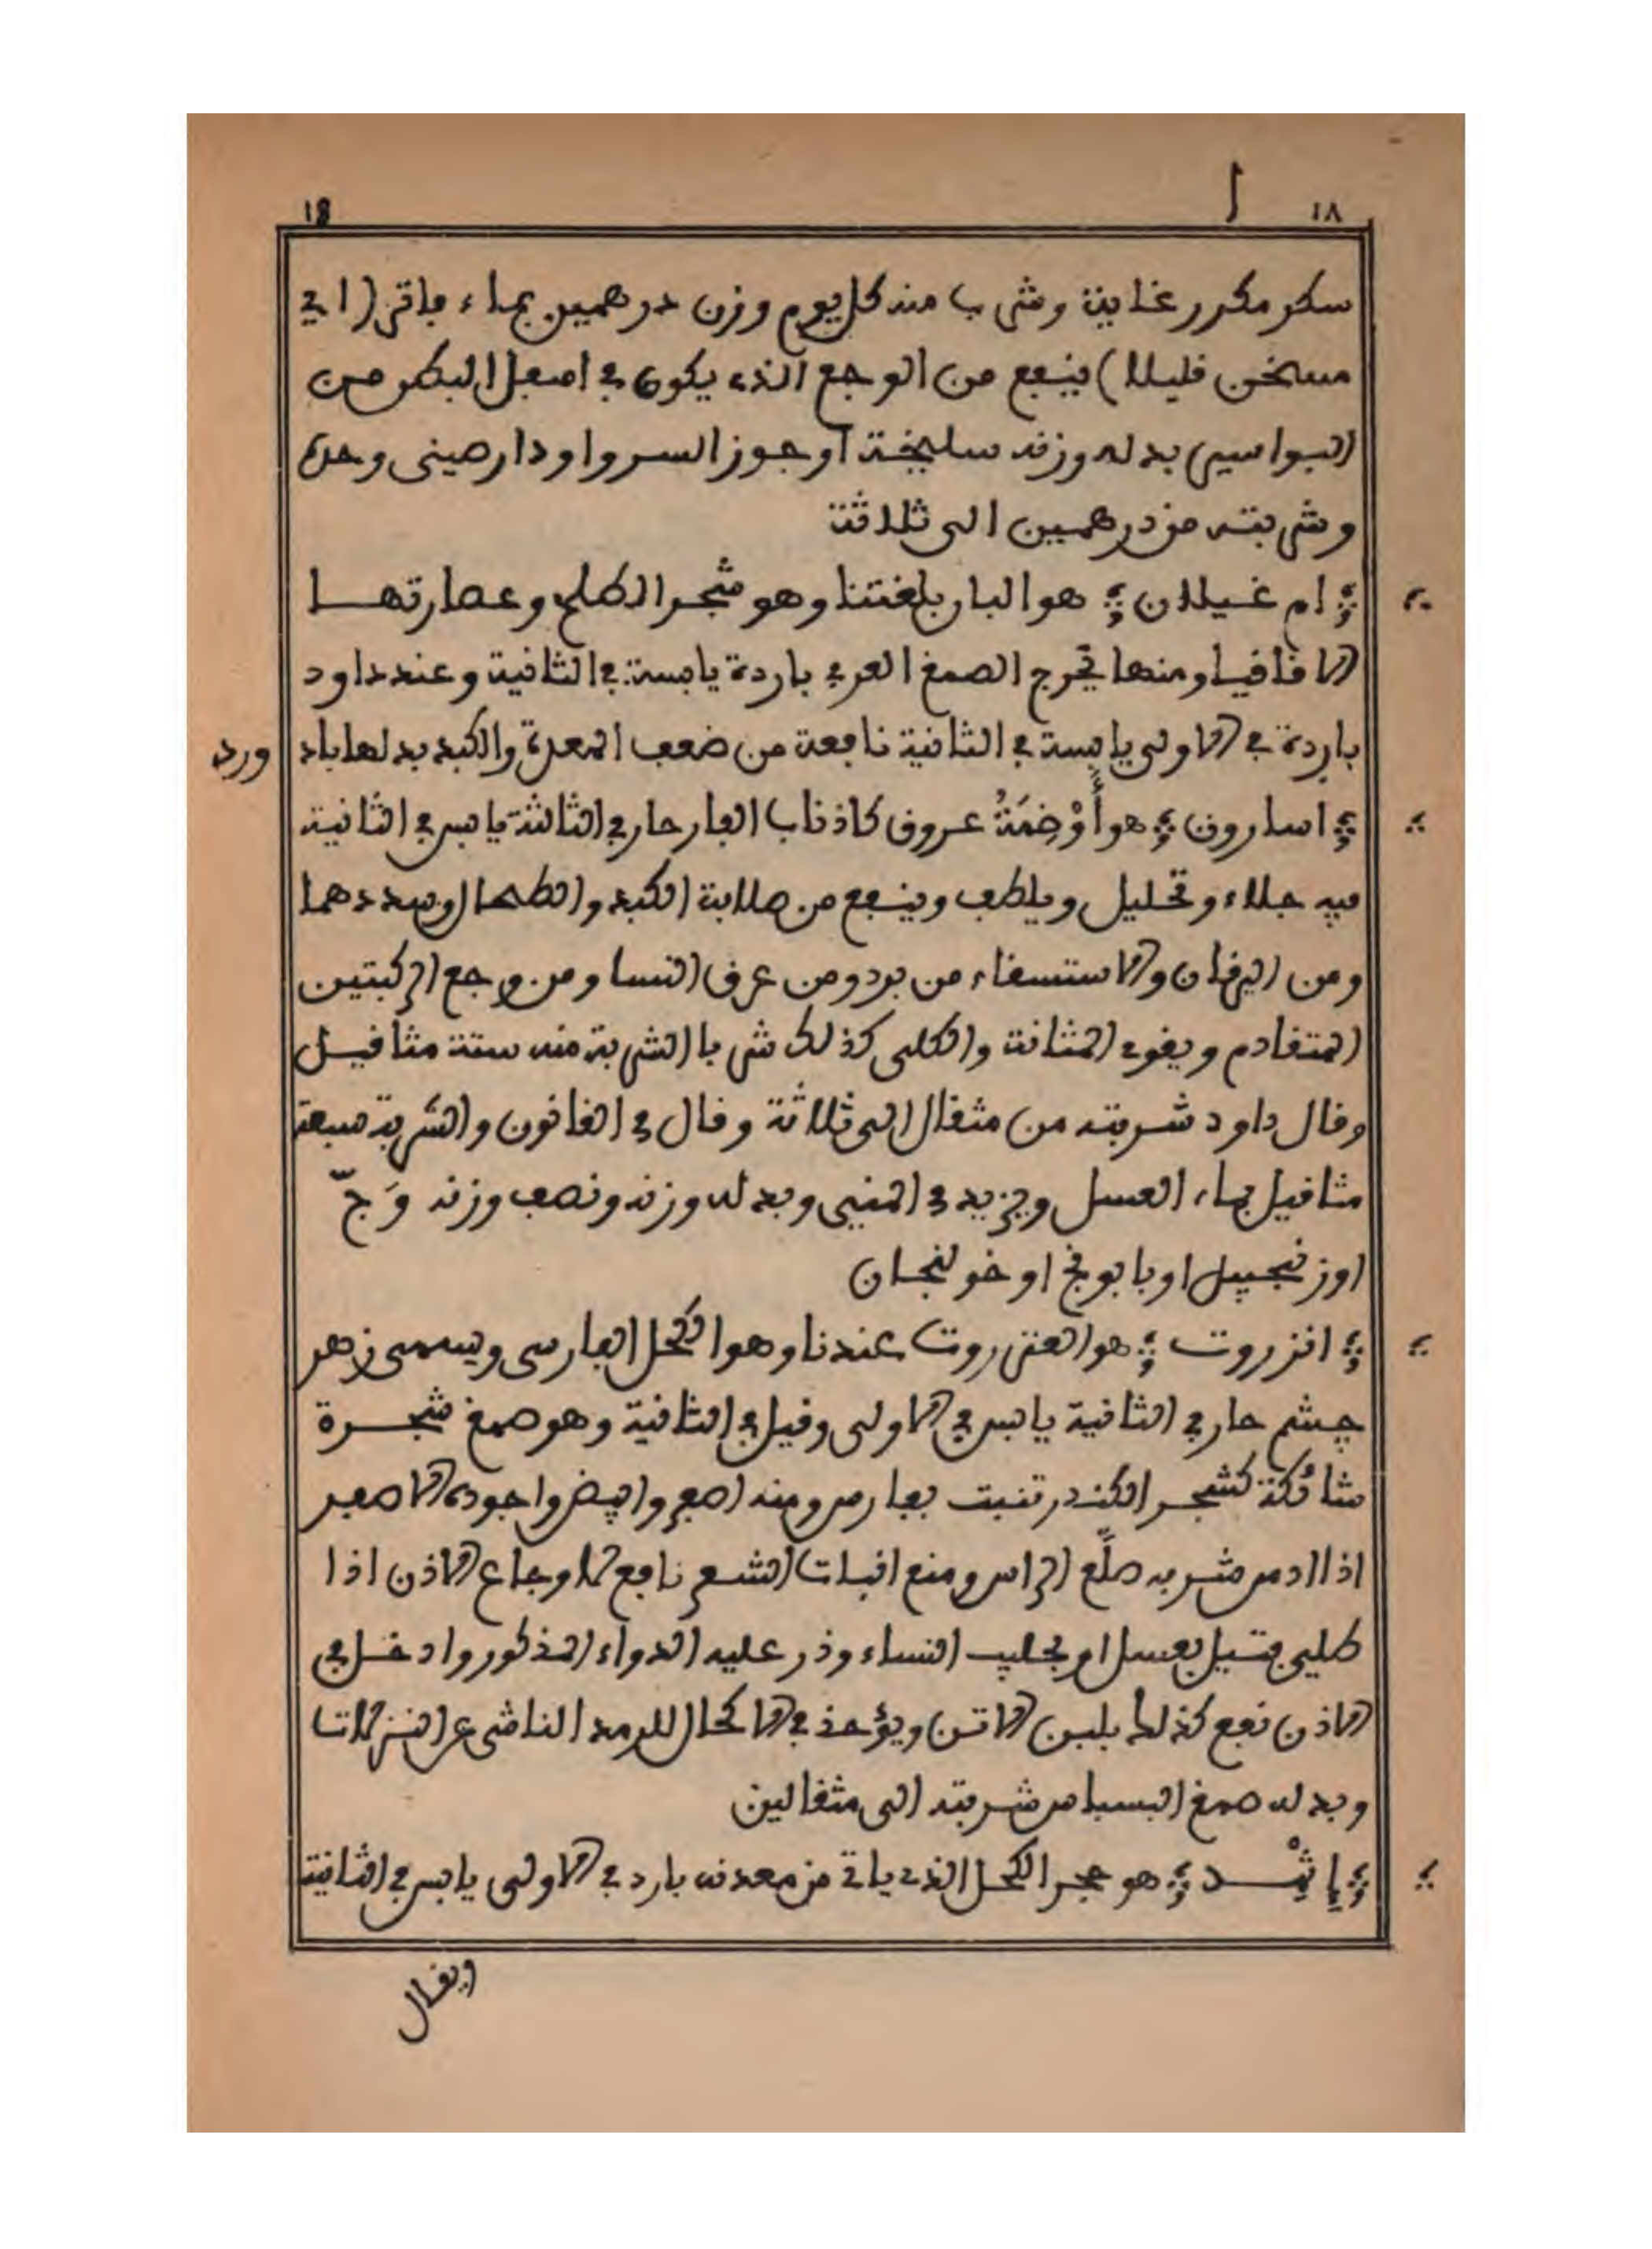 ١٨ ا 18
سكر مكرر غاية وشرب منه كل يوم وزن درهمين بماء فاتر (اي
مسخن قليلا) ينفع من الوجع الذي يكون في اسفل البطن من
البواسير بدله وزنه سليخة او جوز السرو او دار صيني وحده
وشربته من درهمين الى ثلاثة
ام غيلان هو البار بلغتنا وهو شجر الطلح وعصارتها
الاقاقيا ومنها يخرج الصمغ العربي باردة يابسة في الثانية وعند داود
باردة في الاولى يابسة في الثانية نافعة من ضعف المعدة والكبد بدلها باد
ورد
اسارون هو أَوْضِمَةُ عروق كاذناب الفار حار في الثالثة يابس في الثانية
فيه جلاء وتحليل ويلطف وينفع من صلابة الكبد والطحال وسددهما
ومن اليرقان والاستسقاء من برد ومن عرق النسا ومن وجع الركبتين
المتقادم ويقوي المثانة والكلى كذلك شربا الشربة منه ستة مثاقيل
وقال داود شربته من مثقال الى ثلاثة وقال في القانون والشربة سبعة
مثاقيل بماء العسل ويزيد في المني وبدله وزنه ونصف وزنه وَجّ
او زنجبيل او بابونج او خولنجان
انزروت هو العنزروت عندنا وهو الكحل الفارسي ويسمى زهر
چشم حار في الثانية يابس في الاولى وقيل في الثانية وهو صمغ شجرة
شائكة كشجر الكندر تنبت بفارس ومنه اصفر وابيض واجوده الاصفر
اذا ادمن شربه صلّع الراس ومنع انبات الشعر نافع لاوجاع الاذن اذا
طلي فتيل بعسل او بحليب النساء وذر عليه الدواء المذكور وادخل في
الاذن نفع كذلك بلبن الاتن ويؤخذ في الاكحال للرمد الناشي عن النزلات
وبدله صمغ البسباس شربته الى مثقالين
إِثْمِد هو حجر الكحل الذي ياتي من معدنه بارد في الاولى يابس في الثانية
ويقال